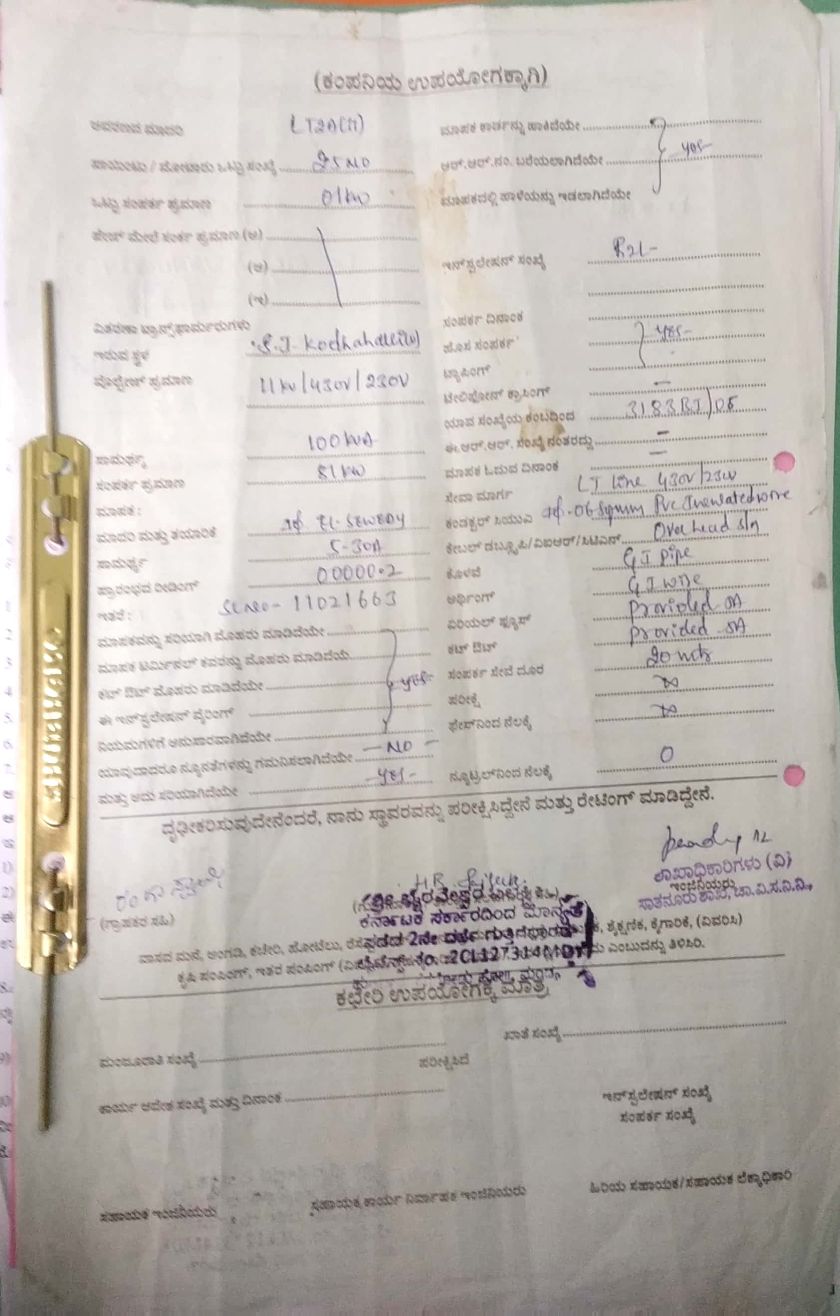 (ಕಂಪನಿಯ ಉಪಯೋಗಕ್ಕಾಗಿ)
ಆವರಣದ ಮಾದರಿ LT2A(ii)
ಪಾಯಿಂಟು / ಮೋಟಾರು ಒಟ್ಟು ಸಂಖ್ಯೆ 25 NO
ಒಟ್ಟು ಸಂಪರ್ಕ ಪ್ರಮಾಣ 01 kw
ಪೇಜ್ ಮೇಲೆ ಸಂರ್ಕ ಪ್ರಮಾಣ (ಅ)
(ಆ)
(ಇ)
ವಿತರಣಾ ಟ್ರಾನ್ಸ್‌ಫಾರ್ಮರುಗಳು
ಇರುವ ಸ್ಥಳ
ವೋಲ್ಟೇಜ್ ಪ್ರಮಾಣ 11kv/430V/230V
ಸಾಮರ್ಥ್ಯ 100 kVA
ಸಂಪರ್ಕ ಪ್ರಮಾಣ 81 kw
ಮಾಪಕ :
ಮಾದರಿ ಮತ್ತು ತಯಾರಿಕೆ
ಸಾಮರ್ಥ್ಯ 5-30A
ಪ್ರಾರಂಭದ ರೀಡಿಂಗ್ 00000.2
ಇತರೆ : Sl.no- 11021663
ಮಾಪಕವನ್ನು ಸರಿಯಾಗಿ ಮೊಹರು ಮಾಡಿದೆಯೇ
ಮಾಪಕ ಟರ್ಮಿನಲ್ ಕವರನ್ನು ಮೊಹರು ಮಾಡಿದೆಯೆ
ಕಟ್ ಔಟ್ ಮೊಹರು ಮಾಡಿದೆಯೇ yes-
ಈ ಇನ್‌ಸ್ಟಲೇಷನ್ ವೈರಿಂಗ್
ನಿಯಮಗಳಿಗೆ ಅನುಸಾರವಾಗಿದೆಯೇ
ಯಾವುದಾದರೂ ನ್ಯೂನತೆಗಳನ್ನು ಗಮನಿಸಲಾಗಿದೆಯೇ - NO -
ಮತ್ತು ಅದು ಸರಿಯಾಗಿದೆಯೇ - yes -
ಮಾಪಕ ಕಾರ್ಡನ್ನು ಹಾಕಿದೆಯೇ
ಆರ್.ಆರ್.ನಂ. ಬರೆಯಲಾಗಿದೆಯೇ yes-
ಮಾಪಕದಲ್ಲಿ ಹಾಳೆಯನ್ನು ಇಡಲಾಗಿದೆಯೇ
ಇನ್‌ಸ್ಟಲೇಷನ್ ಸಂಖ್ಯೆ
ಸಂಪರ್ಕ ದಿನಾಂಕ
ಹೊಸ ಸಂಪರ್ಕ yes-
ಟ್ಯಾಪಿಂಗ್
ಟೆಲಿಫೋನ್ ಕ್ರಾಸಿಂಗ್ -
ಯಾವ ಸಂಖ್ಯೆಯ ಕಂಬದಿಂದ
ಈ.ಆರ್.ಆರ್. ಸಂಖ್ಯೆ ನಂತರದ್ದು -
ಮಾಪಕ ಓದುವ ದಿನಾಂಕ -
ಸೇವಾ ಮಾರ್ಗ LT line 430V/230V
ಕಂಡಕ್ಟರ್ ಸಿಯುವಿ
ಕೇಬಲ್ ಡಬ್ಲ್ಯೂಪಿ/ವಿಐಆರ್/ಸಿಟಿಎಸ್
ಕೊಳವೆ GI pipe
ಅರ್ಥಿಂಗ್ GI wire
ಏರಿಯಲ್ ಫ್ಯೂಸ್ Provided 5A
ಕಟ್ ಔಟ್ Provided 5A
ಸಂಪರ್ಕ ಸೇವೆ ದೂರ 20 mtr
ಪರೀಕ್ಷೆ
ಫೇಸ್‌ನಿಂದ ನೆಲಕ್ಕೆ
ನ್ಯೂಟ್ರಲ್‌ನಿಂದ ನೆಲಕ್ಕೆ 0
ದೃಢೀಕರಿಸುವುದೇನೆಂದರೆ, ನಾನು ಸ್ಥಾವರವನ್ನು ಪರೀಕ್ಷಿಸಿದ್ದೇನೆ ಮತ್ತು ರೇಟಿಂಗ್ ಮಾಡಿದ್ದೇನೆ.
(ಗ್ರಾಹಕರ ಸಹಿ)
ಕರ್ನಾಟಕ ಸರ್ಕಾರದಿಂದ ಮಾನ್ಯತೆ
ಪಡೆದ 2ನೇ ದರ್ಜೆ ಗುತ್ತಿಗೆದಾರರು
ಲೈಸೆನ್ಸ್ No. 2CL127314MDY
ಶಾಖಾಧಿಕಾರಿಗಳು (ವಿ)
ಇಂಜಿನಿಯರು
ಸಾತನೂರು ಶಾಖೆ, ಚಾ.ವಿ.ಸ.ನಿ.ನಿ.,
ವಾಸದ ಮನೆ, ಅಂಗಡಿ, ಕಚೇರಿ, ಹೋಟೆಲು, ಶೈಕ್ಷಣಿಕ, ಕೈಗಾರಿಕೆ, (ವಿವರಿಸಿ)
ಕೃಷಿ ಪಂಪಿಂಗ್, ಇತರ ಪಂಪಿಂಗ್ ಎಂಬುದನ್ನು ತಿಳಿಸಿರಿ.
ಕಛೇರಿ ಉಪಯೋಗಕ್ಕೆ ಮಾತ್ರ
ಮಂಜೂರಾತಿ ಸಂಖ್ಯೆ
ಖಾತೆ ಸಂಖ್ಯೆ
ಪರೀಕ್ಷಿಸಿದೆ
ಕಾರ್ಯ ಆದೇಶ ಸಂಖ್ಯೆ ಮತ್ತು ದಿನಾಂಕ
ಇನ್‌ಸ್ಟಲೇಷನ್ ಸಂಖ್ಯೆ
ಸಂಪರ್ಕ ಸಂಖ್ಯೆ
ಸಹಾಯಕ ಇಂಜಿನಿಯರು ಸಹಾಯಕ ಕಾರ್ಯ ನಿರ್ವಾಹಕ ಇಂಜಿನಿಯರು ಹಿರಿಯ ಸಹಾಯಕ/ಸಹಾಯಕ ಲೆಕ್ಕಾಧಿಕಾರಿ